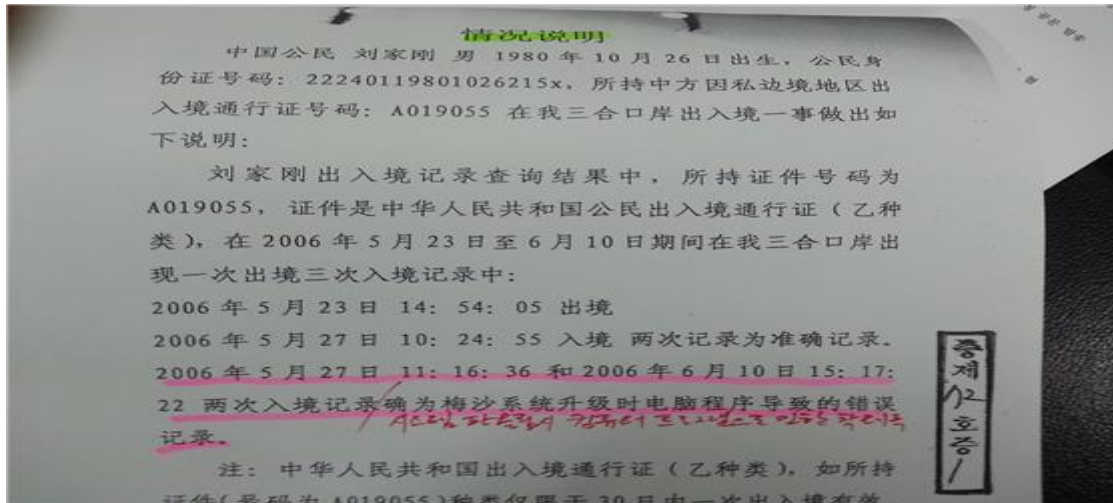 情况说明
中国公民 刘家刚 男 1980 年 10 月 26 日出生，公民身
份证号码：22240119801026215x，所持中方因私边境地区出
入境通行证号码：A019055 在我三合口岸出入境一事做出如
下说明：
刘家刚出入境记录查询结果中，所持证件号码为
A019055，证件是中华人民共和国公民出入境通行证（乙种
类），在 2006 年 5 月 23 日至 6 月 10 日期间在我三合口岸出
现一次出境三次入境记录中：
2006 年 5 月 23 日 14：54：05 出境
2006 年 5 月 27 日 10：24：55 入境 两次记录为准确记录。
2006 年 5 月 27 日 11：16：36 和 2006 年 6 月 10 日 15：17：
22 两次入境记录确为梅沙系统升级时电脑程序导致的错误
记录。
注：中华人民共和国出入境通行证（乙种类），如所持
证件（号码为 A019055）种类仅限于 30 日内一次出入境有效
증제
12
호증